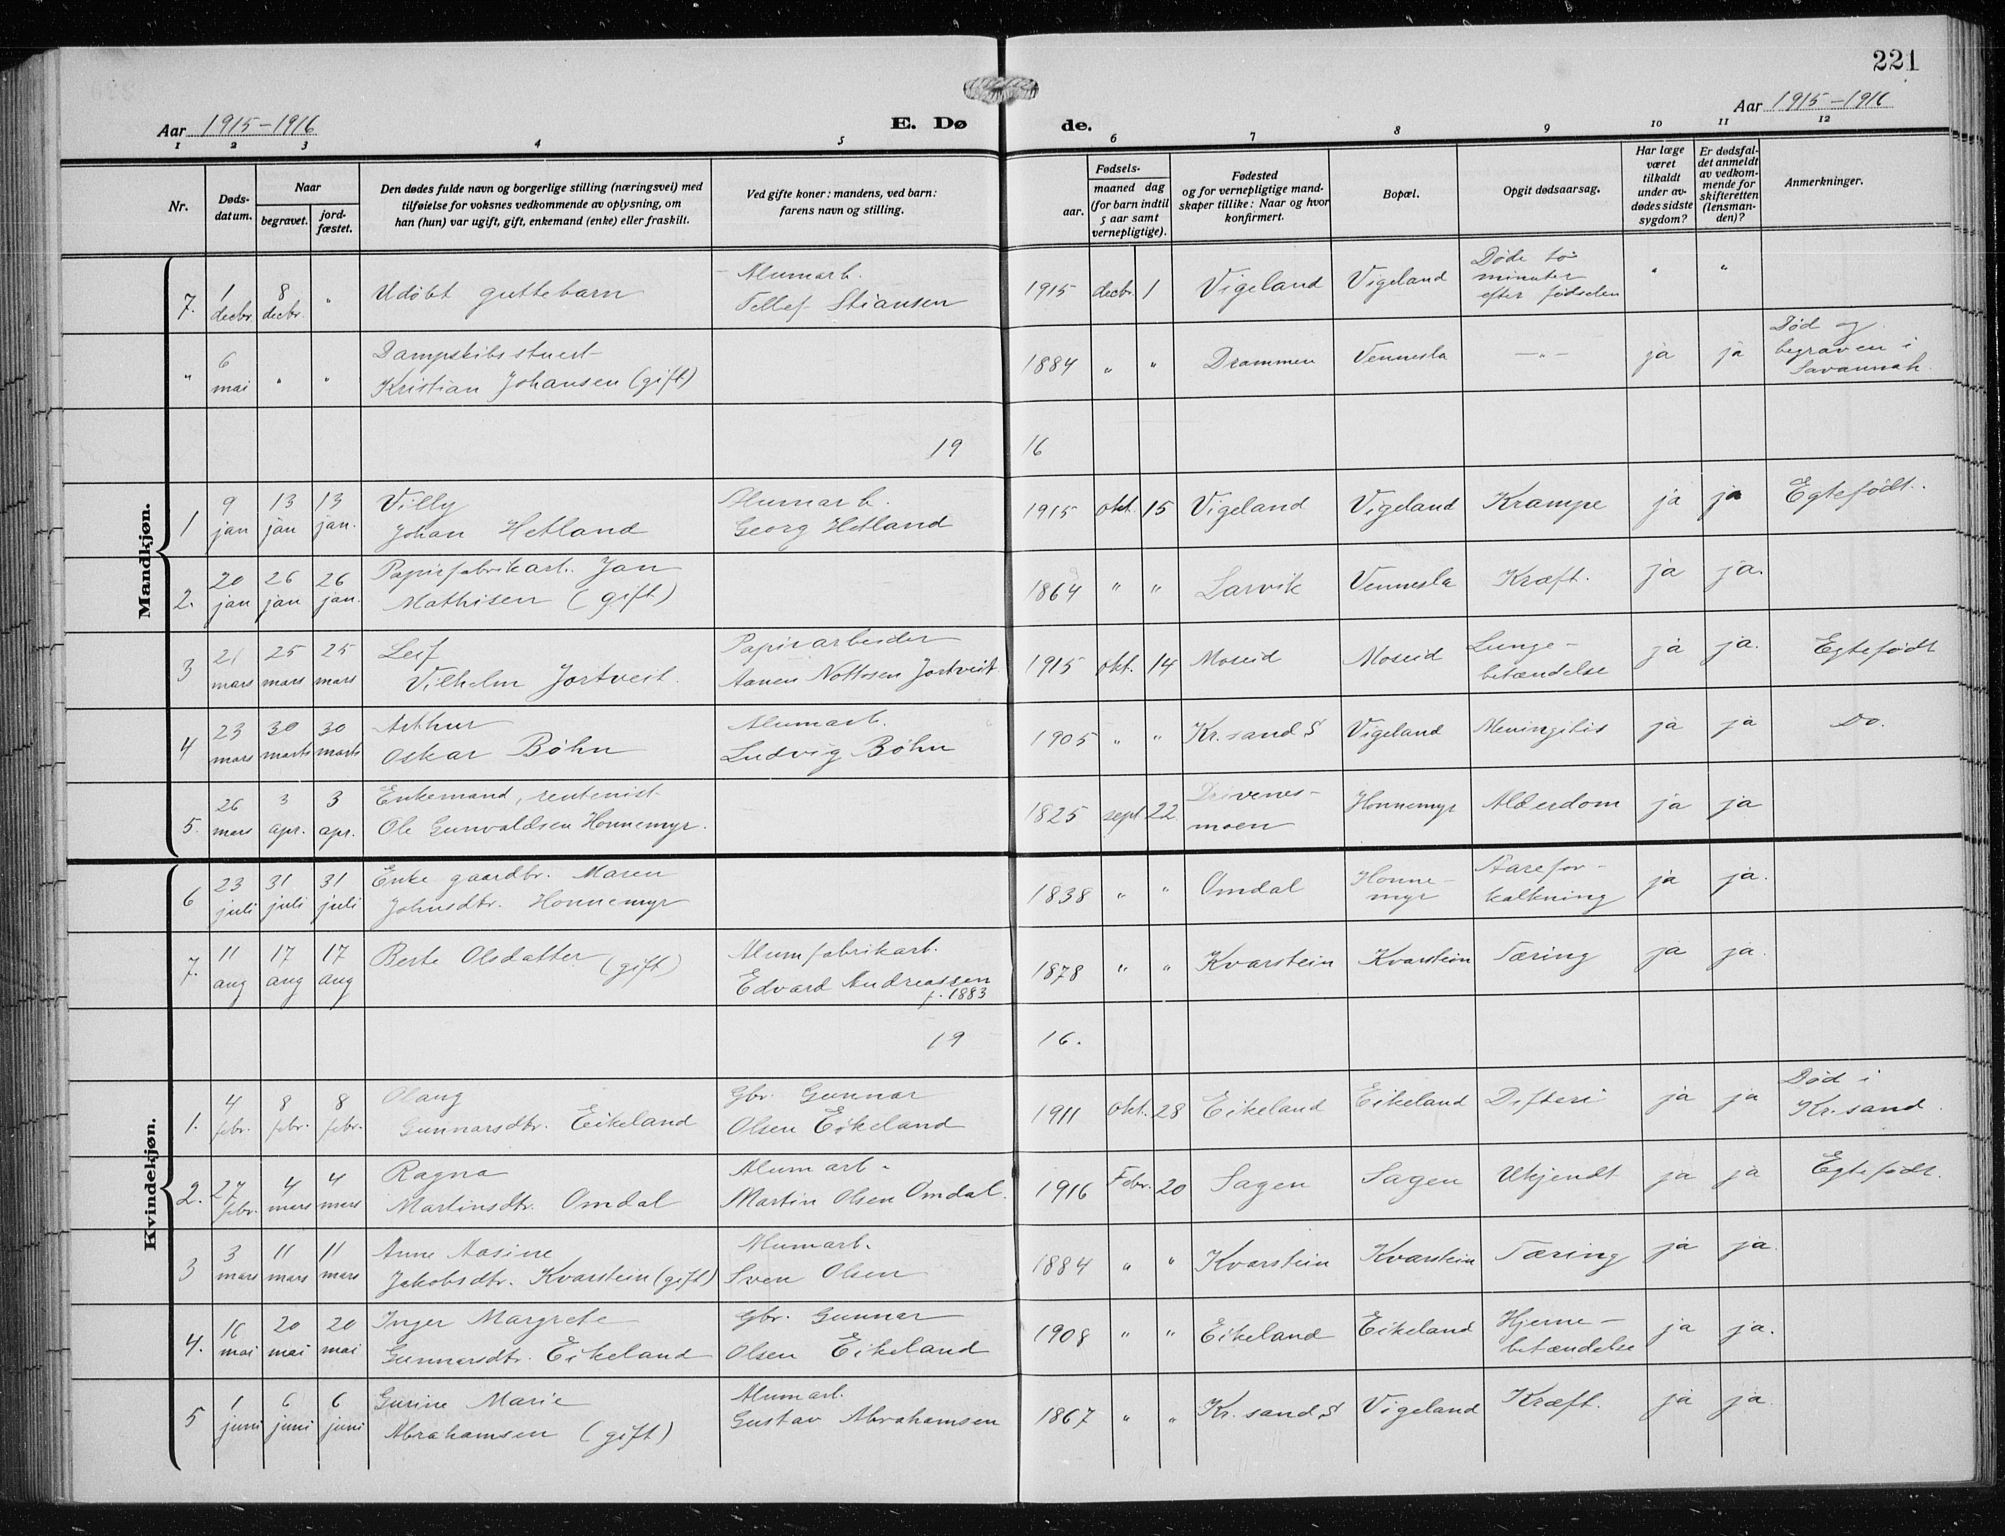 221
Aar 1915-1916
E. Dø
de.
Aar 1915-1916
1 2 3 4 5 6 7 8 9 10 11 12
Nr.
Døds-
datum.
Naar
begravet.
jord-
fæstet.
Den dødes fulde navn og borgerlige stilling (næringsvei) med
tilføielse for voksnes vedkommende av oplysning, om
han (hun) var ugift, gift, enkemand (enke) eller fraskilt.
Ved gifte koner: mandens, ved barn:
farens navn og stilling.
Fødsels-
aar.
maaned dag
(for barn indtil
5 aar samt
vernepligtige).
Fødested
og for vernepligtige mand-
skaper tillike: Naar og hvor
konfirmert.
Bopæl.
Opgit dødsaarsag.
Har læge
været
tilkaldt
under av-
dødes sidste
sygdom?
Er dødsfal-
det anmeldt
av vedkom-
mende for
skifteretten
(lensman-
den)?
Anmerkninger.
Mandkjøn.
7. 1 decbr. 8 decbr. " Udøbt guttebarn
Alumarb.
Tellef Stiansen
1915 decbr. 1 Vigeland Vigeland
Døde to
minuter
efter fødselen
" "
" 6 mai " " Dampskibsstuert
Kristian Johansen (gift)
1884 " " Drammen Vennesla -"- ja ja
Død og
begraven i
Savannah.
19 16
1 9 jan 13 jan 13 jan. Villy
Johan Hetland
Alumarb.
Georg Hetland
1915 okt. 15 Vigeland Vigeland Krampe ja ja Egtefødt.
2. 20 jan 26 jan 26 jan. Papirfabrikarb. Jan
Mathisen (gift)
1864 " " Larvik Vennesla Kræft. ja ja.
3 21 mars 25 mars 25 mars Leif
Vilhelm Jortveit.
Papirarbeider
Aanen Nottosen Jortveit.
1915 okt. 14 Moseid Moseid
Lunge-
betændelse
ja ja. Egtefødt
4 23 mars 30 marts 30 marts Arthur
Oskar Bøhn
Alumarb.
Ludvig Bøhn
1905 " " Kr.sand S Vigeland Meningitis ja ja Do.
5. 26 mars 3 apr. 3 apr. Enkemand, rentenist
Ole Gunvaldsen Honnemyr.
1825 sept 22.
Drivenes-
moen
Honnemyr Alderdom ja ja
Kvindekjøn.
6 23 juli 31 juli 31 juli Enke gaardbr. Maren
Johnsdtr. Honnemyr
1838 " " Omdal
Honne-
myr
Aarefor-
kalkning
ja ja.
7. 11 aug 17 aug 17 aug Berte Olsdatter (gift)
Alumfabrikarb.
Edvard Andreassen
f. 1883
1878 " " Kvarstein Kvarstein Tæring ja ja.
19 16.
1. 4 febr. 8 febr. 8 febr. Olaug
Gunnarsdtr. Eikeland
Gbr. Gunnar
Olsen Eikeland
1911 Okt. 28 Eikeland Eikeland Difteri ja ja
Død i
Kr.sand.
2. 27 febr. 4 mars 4 mars Ragna
Martinsdtr. Omdal
Alumarb.
Martin Olsen Omdal.
1916 Febr. 20 Sagen Sagen Ukjendt ja ja Egtefødt.
3 3 mars 11 mars 11 mars Anne Aasine
Jakobsdtr. Kvarstein (gift)
Alumarb.
Sven Olsen
1884 " " Kvarstein Kvarstein Tæring ja ja.
4. 16 mai 20 mai 20 mai Inger Margrete
Gunnarsdtr. Eikeland
Gbr. Gunnar
Olsen Eikeland
1908 " " Eikeland Eikeland
Hjerne-
betændelse
ja ja.
5 1 juni 6 juni 6 juni Gurine Marie
Abrahamsen (gift)
Alumarb.
Gustav Abrahamsen
1867 " " Kr.sand S Vigeland Kræft. ja ja.